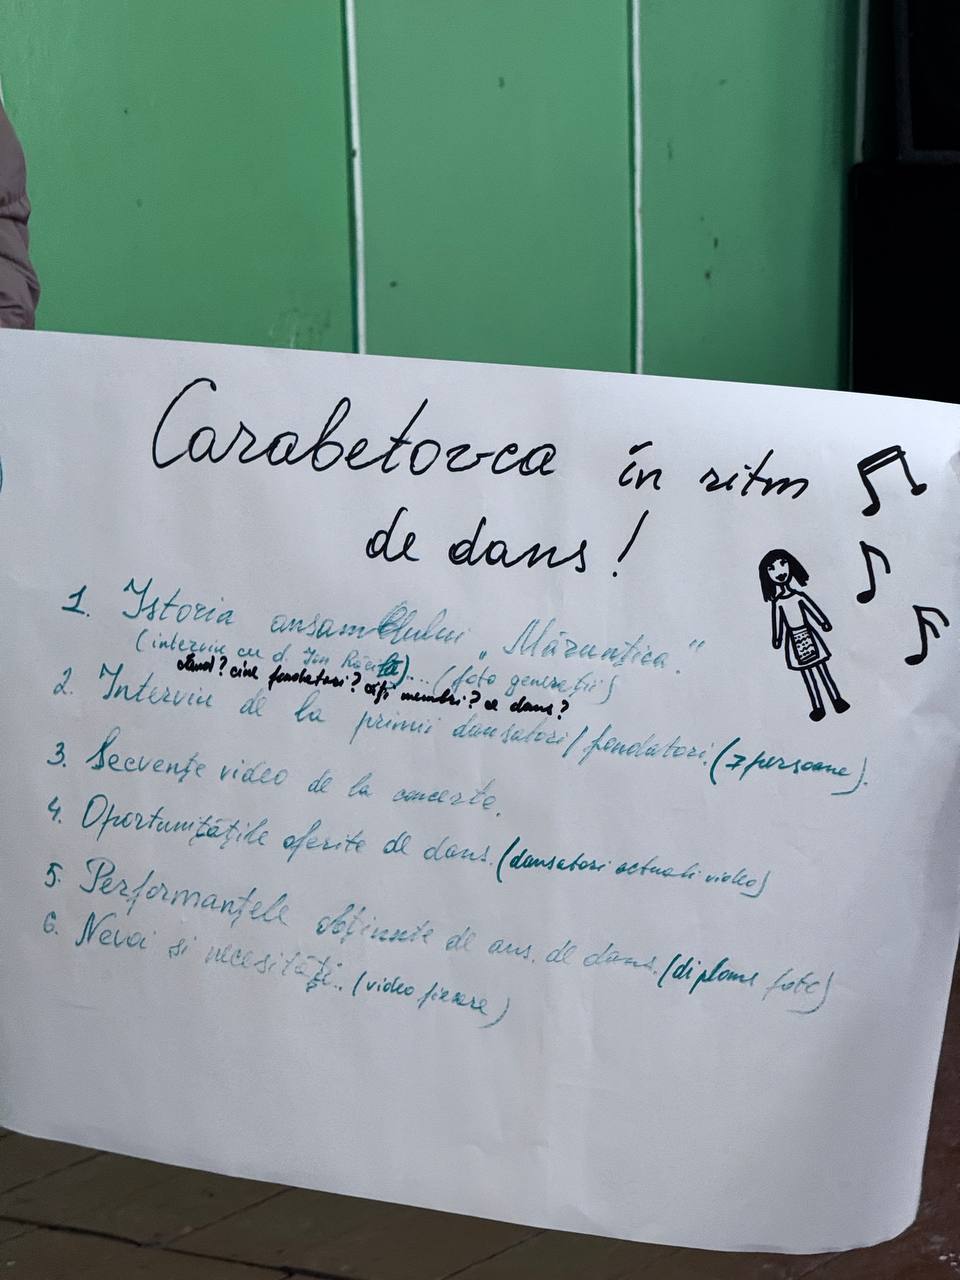 Carabetovca în ritm
de dans!
1. Istoria ansamblului „Mărunțica."
(interviu cu d. Ion)... (foto generații)
când? cine fondatori? câți membri? ce dans?
2. Interviu de la primii dansatori/fondatori. (7 persoane).
3. Secvențe video de la concerte.
4. Oportunitățile oferite de dans. (dansatori actuali video)
5. Performanțele obținute de ans. de dans. (diplome foto)
6. Nevoi si necesități.. (video)